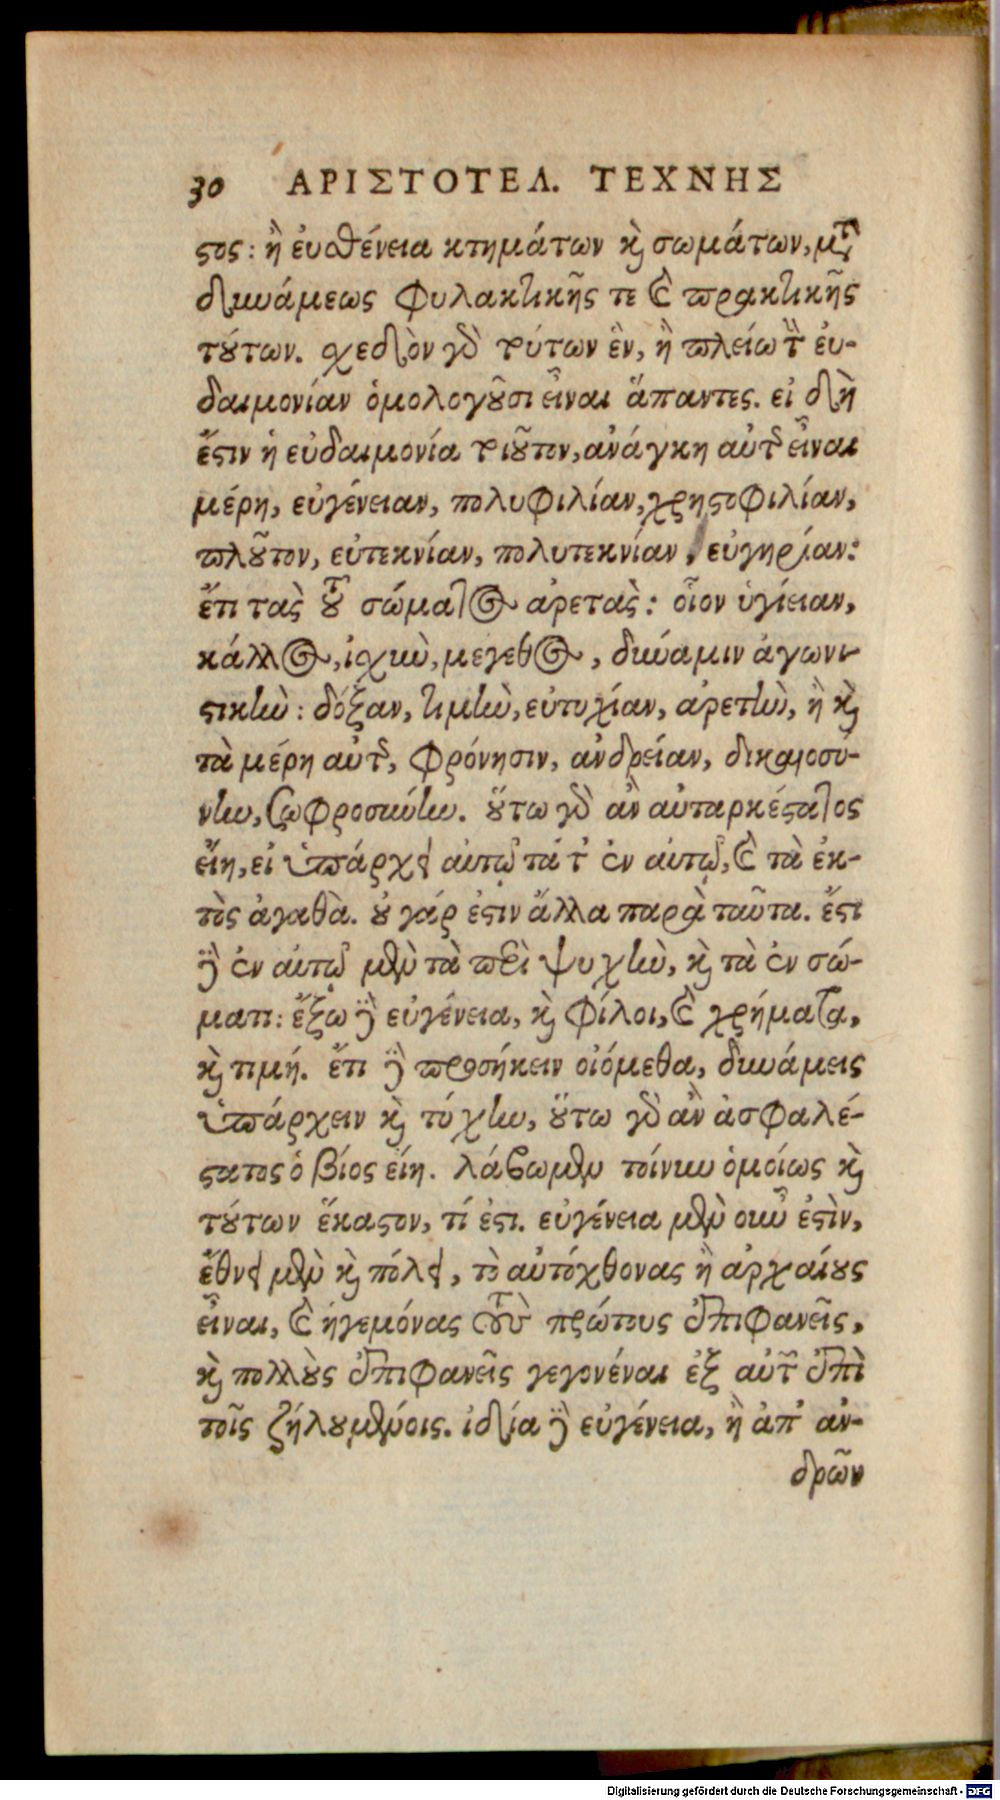 30 ΑΡΙΣΤΟΤΕΛ. ΤΕΧΝΗΣ
στος: ἢ εὐθένεια κτημάτων καὶ σωμάτων, μετὰ
δυνάμεως φυλακτικῆς τε καὶ πρακτικῆς
τούτων. σχεδὸν γὰρ τούτων ἓν, ἢ πλείω τὴν εὐ-
δαιμονίαν ὁμολογοῦσι εἶναι ἅπαντες. εἰ δὴ
ἔστιν ἡ εὐδαιμονία τοιοῦτον, ἀνάγκη αὐτῆς εἶναι
μέρη, εὐγένειαν, πολυφιλίαν, χρηστοφιλίαν,
πλοῦτον, εὐτεκνίαν, πολυτεκνίαν, εὐγηρίαν:
ἔτι τὰς τοῦ σώματος ἀρετὰς: οἷον ὑγίειαν,
κάλλος, ἰσχὺν, μέγεθος, δύναμιν ἀγωνι-
στικὴν: δόξαν, τιμὴν, εὐτυχίαν, ἀρετὴν, ἢ καὶ
τὰ μέρη αὐτῆς, φρόνησιν, ἀνδρείαν, δικαιοσύ-
νην, σωφροσύνην. οὕτω γὰρ ἂν αὐταρκέστατος
εἴη, εἰ ὑπάρχει αὐτῷ τά τ' ἐν αὐτῷ, καὶ τὰ ἐκ-
τὸς ἀγαθὰ. οὐ γάρ ἐστιν ἄλλα παρὰ ταῦτα. ἔστι
δὲ ἐν αὐτῷ μὲν τὰ περὶ ψυχὴν, καὶ τὰ ἐν σώ-
ματι: ἔξω δὲ εὐγένεια, καὶ φίλοι, καὶ χρήματα,
καὶ τιμή. ἔτι δὲ προσήκειν οἰόμεθα, δυνάμεις
ὑπάρχειν καὶ τύχην, οὕτω γὰρ ἂν ἀσφαλέ-
στατος ὁ βίος εἴη. λάβωμεν τοίνυν ὁμοίως καὶ
τούτων ἕκαστον, τί ἐστι. εὐγένεια μὲν οὖν ἐστὶν,
ἔθνει μὲν καὶ πόλει, τὸ αὐτόχθονας ἢ ἀρχαίους
εἶναι, καὶ ἡγεμόνας τοὺς πρώτους ἐπιφανεῖς,
καὶ πολλοὺς ἐπιφανεῖς γεγονέναι ἐξ αὐτῶν ἐπὶ
τοῖς ζηλουμένοις. ἰδίᾳ δὲ εὐγένεια, ἢ ἀπ' ἀν-
δρῶν
Digitalisierung gefördert durch die Deutsche Forschungsgemeinschaft - DFG